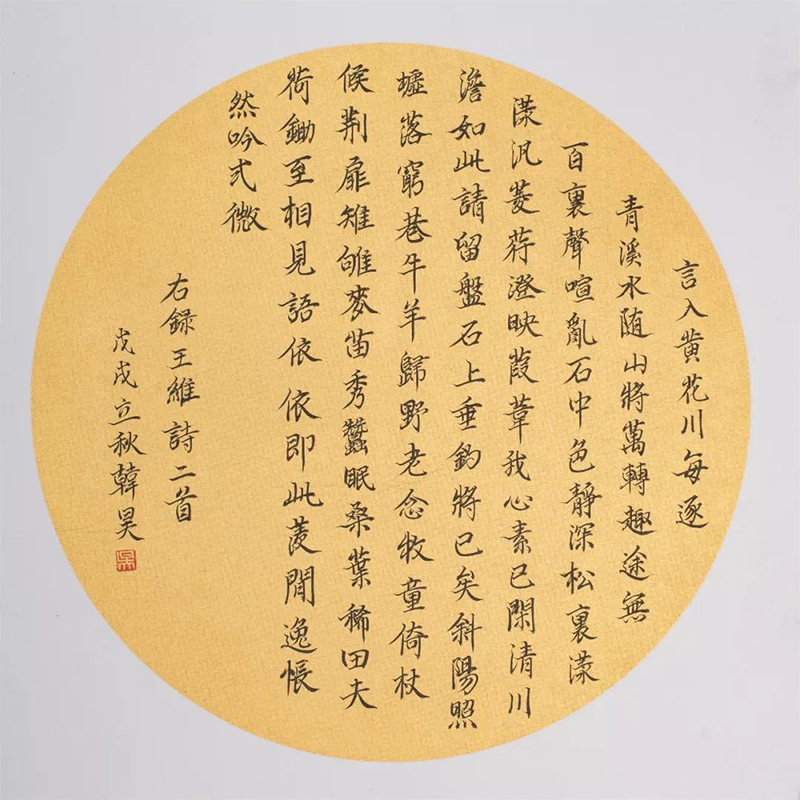 言入黄花川每逐
青溪水随山將萬轉趣途無
百裏聲喧亂石中色靜深松裏漾
漾汎菱荇澄映葭葦我心素已閑清川
澹如此請留盤石上垂釣將已矣斜陽照
墟落窮巷牛羊歸野老念牧童倚杖
候荆扉雉雊麥苗秀蠶眠桑葉稀田夫
荷鋤至相見語依依即此羨閒逸悵
然吟式微
右録王維詩二首
戊戌立秋韓昊